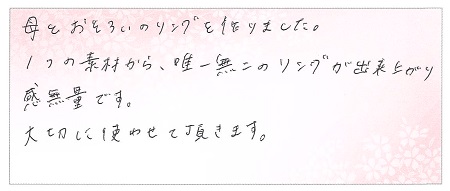 母とおそろいのリングを作りました。
1つの素材から、唯一無二のリングが出来上がり
感無量です。
大切に使わせて頂きます。